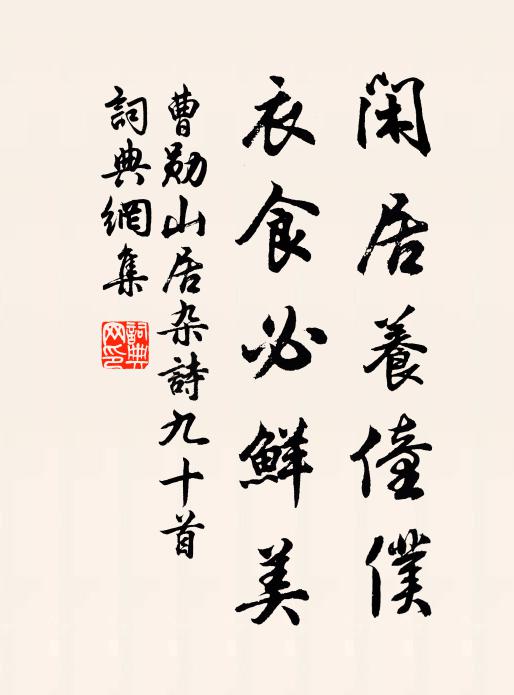 閑居養僮僕
衣食必鮮美
曹勛山居杂詩九十首
詞典網集
詞典网印